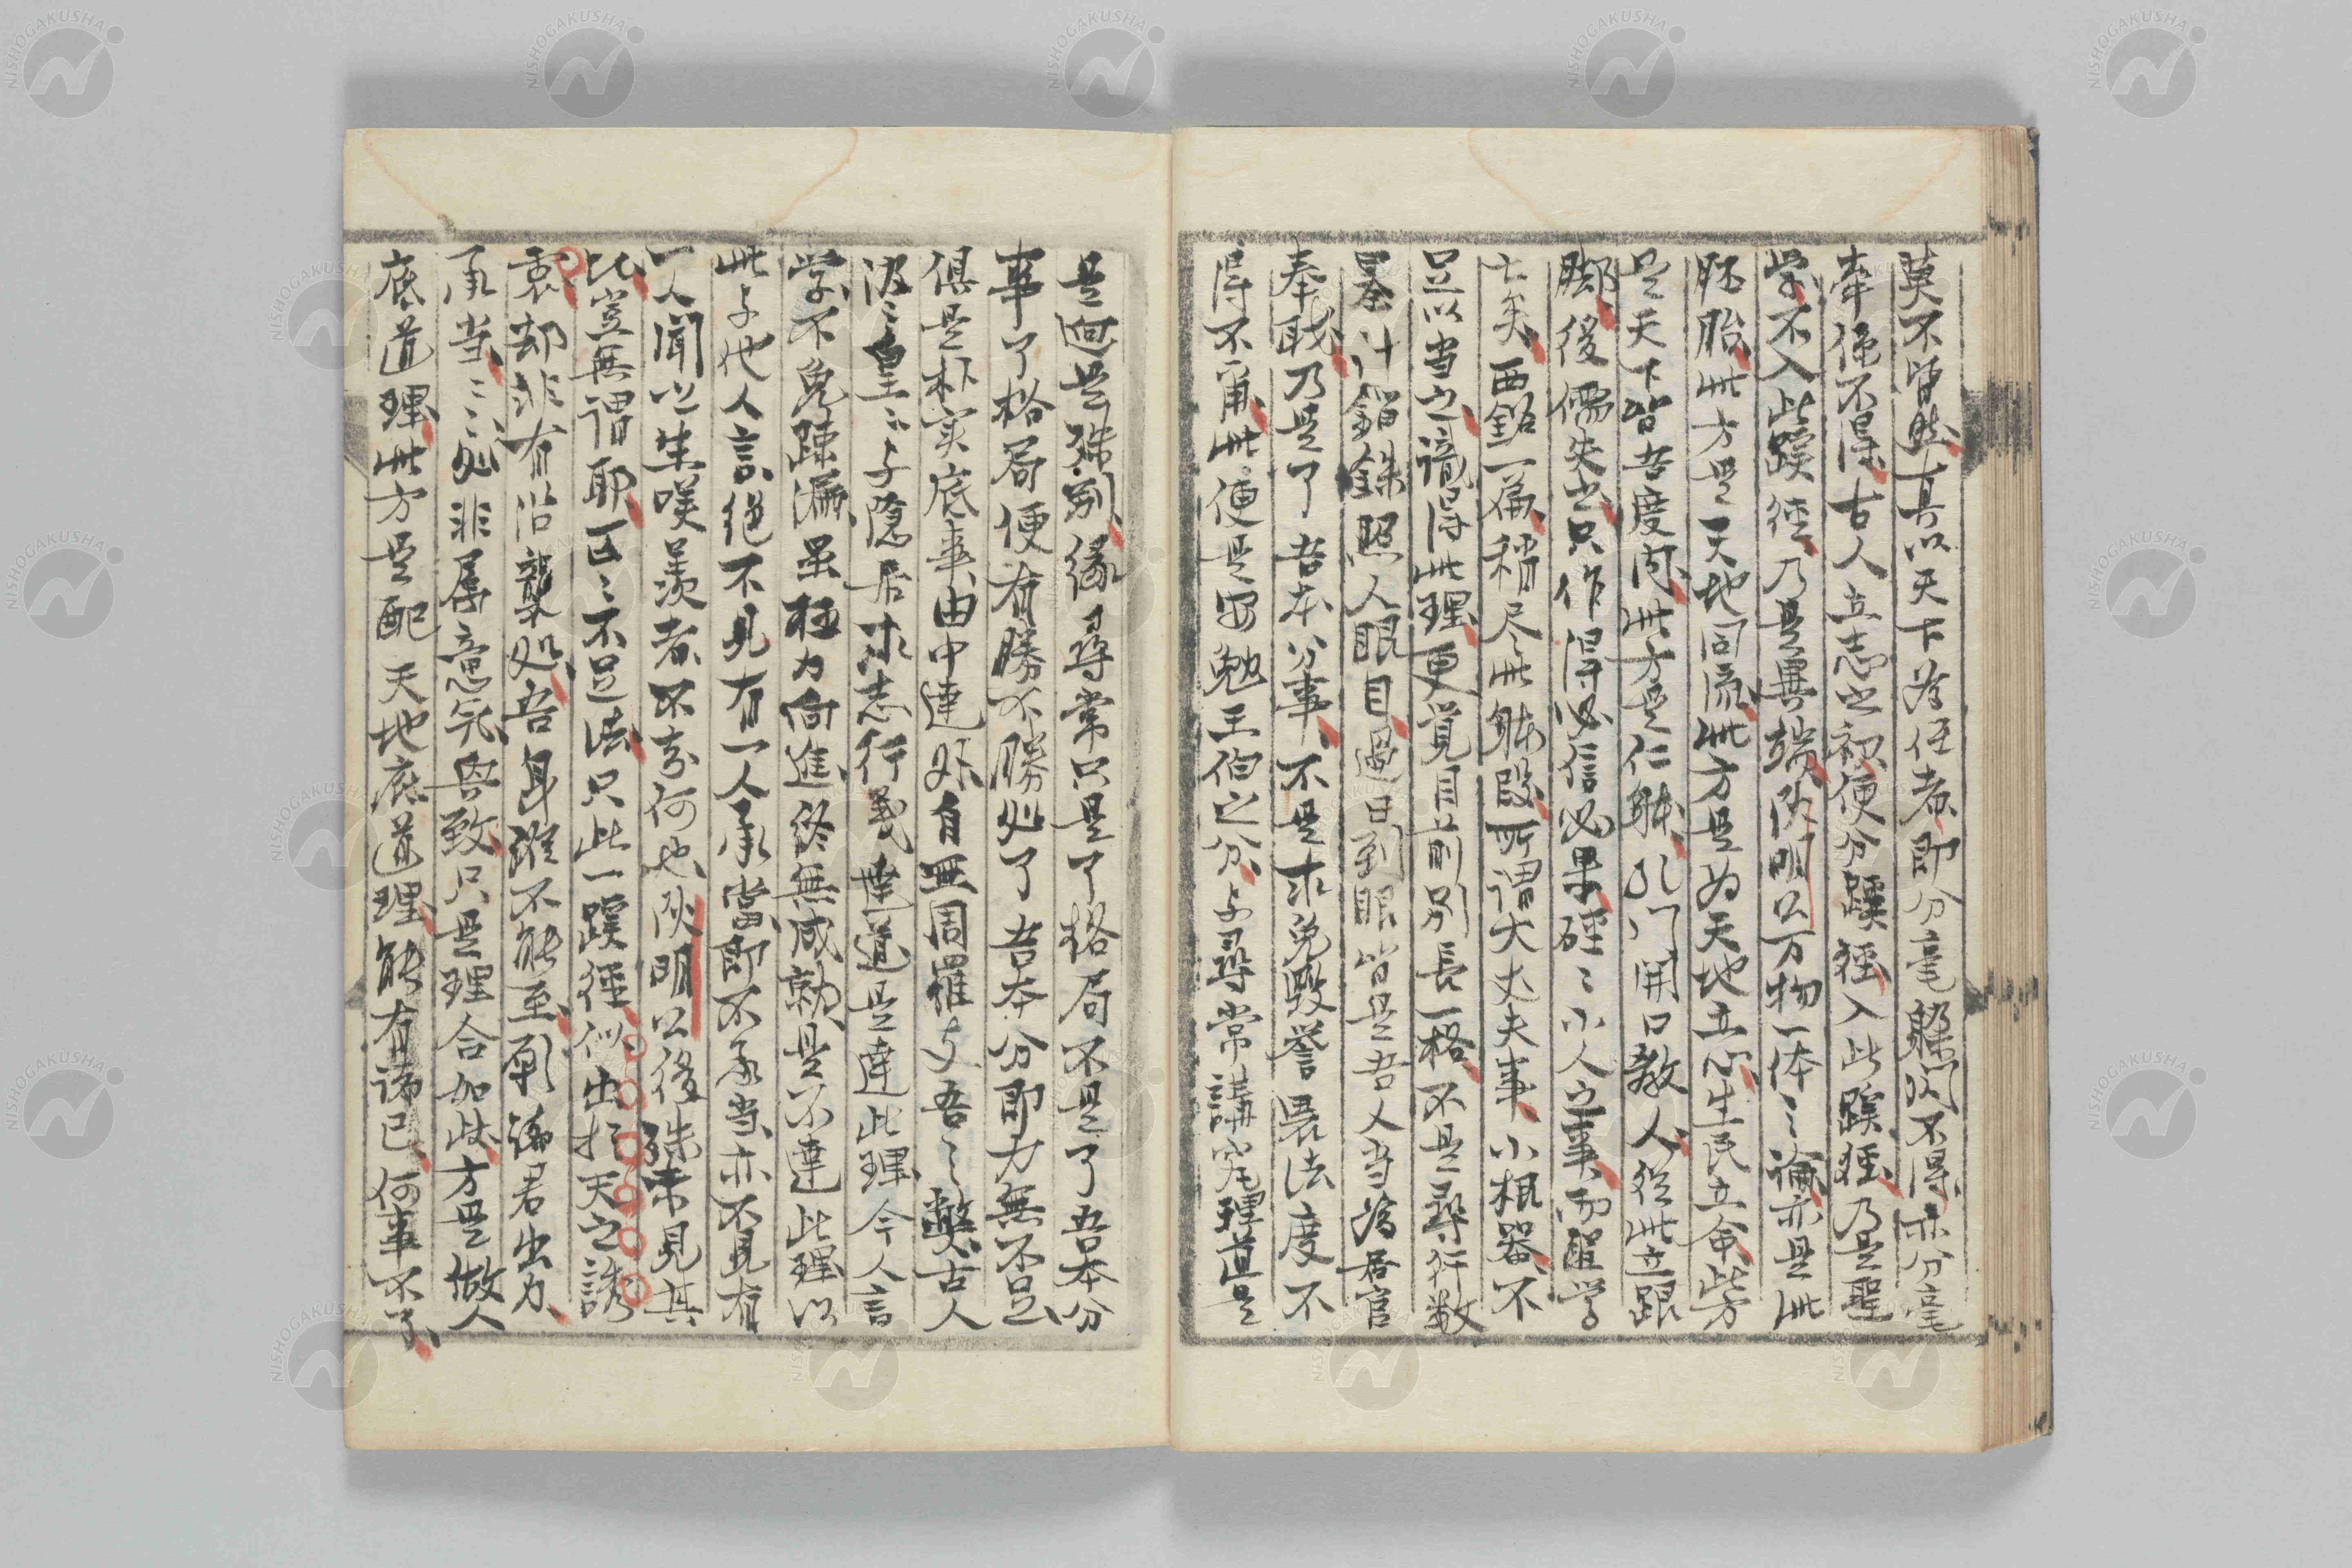 莫不皆然真以天下為任者即分毫躲閃不得亦分毫
牽係不得古人立志之初便分蹊徑入此蹊徑乃是聖
学不入此蹊徑乃是異端阳明公万物一体之論亦是此
胚胎此方是天地同流此方是为天地立心生民立命此方
是天下皆吾度内此方是仁躰孔门開口教人從此立跟
脚後儒失之只作得必信必果硜〻小人之事而聖学
亡矣西銘一篇稍尽此躰段所谓大丈夫事小根器不
足以当之識得此理更覚目前別長一格不是尋行数
墨計錙銖照人眼目過日到眼皆是吾人当為居官
奉職乃是了吾本分事不是求免毀誉畏法度不
得不爾此便是安勉王伯之分与尋常講究理道是
是迥是殊别緣尋常只是了格局不是了吾本分
事了格局便有勝不勝処了吾本分即力無不足
俱是朴实底事由中達外自無周羅支吾之弊古人
汲〻皇〻与隠居求志行義達道是達此理今人言
学不免疎漏虽極力向進終無成就是不達此理以
此与他人言絕不見有一人承當即不承当亦不見有
一人聞以生嘆羨者不知何也阳明公後殊未見其
比豈無謂耶区〻不足法只此一蹊徑似出於天之誘
衷却非有沿襲処吾身雖不能至願諸君出力
承当〻〻処非属意気与致只是理合如此方是做人
底道理此方是配天地底道理能有諸己何事不了